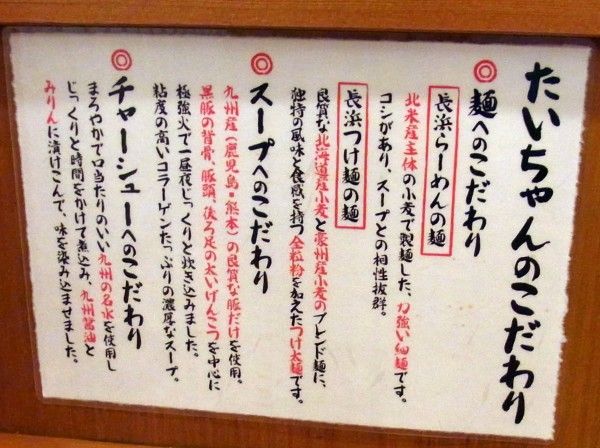 たいちゃんのこだわり
◎麺へのこだわり
長浜らーめんの麺
北米産主体の小麦で製麺した、力強い細麺です。
コシがあり、スープとの相性抜群。
長浜つけ麺の麺
良質な北海道産小麦と豪州産小麦のブレンド麺に、
独特の風味と食感を持つ全粒粉を加えたつけ太麺です。
◎スープへのこだわり
九州産(鹿児島・熊本)の良質な豚だけを使用。
黒豚の背骨、豚頭、後ろ足の太いげんこつを中心に
極強火で一昼夜じっくりと炊き込みました。
粘度の高いコラーゲンたっぷりの濃厚なスープ。
◎チャーシューへのこだわり
まろやかで口当たりのいい九州の名水を使用し
じっくりと時間をかけて煮込み、九州醤油と
みりんに漬けこんで、味を染み込ませました。